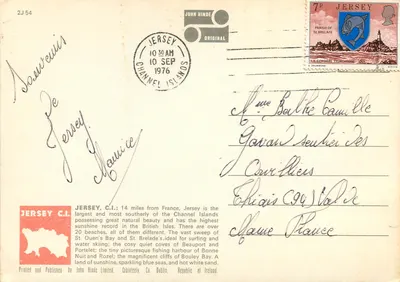 2J54
JOHN HINDE
ORIGINAL
JERSEY
10 30 AM
10 SEP
1976
CHANNEL ISLANDS
7p
JERSEY
Souvenirs
De
Jersey
Maurice
Mme Berthe Camille
sentier des
Thiais (94) Val de
Marne France
JERSEY, C.I.: 14 miles from France, Jersey is the
largest and most southerly of the Channel Islands
possessing great natural beauty and has the highest
sunshine record in the British Isles. There are over
20 beaches, all of them different. The vast sweep of
St. Ouen's Bay and St. Brelade's—ideal for surfing and
water skiing; the cosy quiet coves of Beauport and
Portelet; the tiny picturesque fishing harbour of Bonne
Nuit and Rozel; the magnificent cliffs of Bouley Bay. A
land of sunshine, sparkling blue seas, and hot white sand.
JERSEY C.I.
Printed and Published by John Hinde Limited, Cabinteely Co. Dublin, Republic of Ireland.